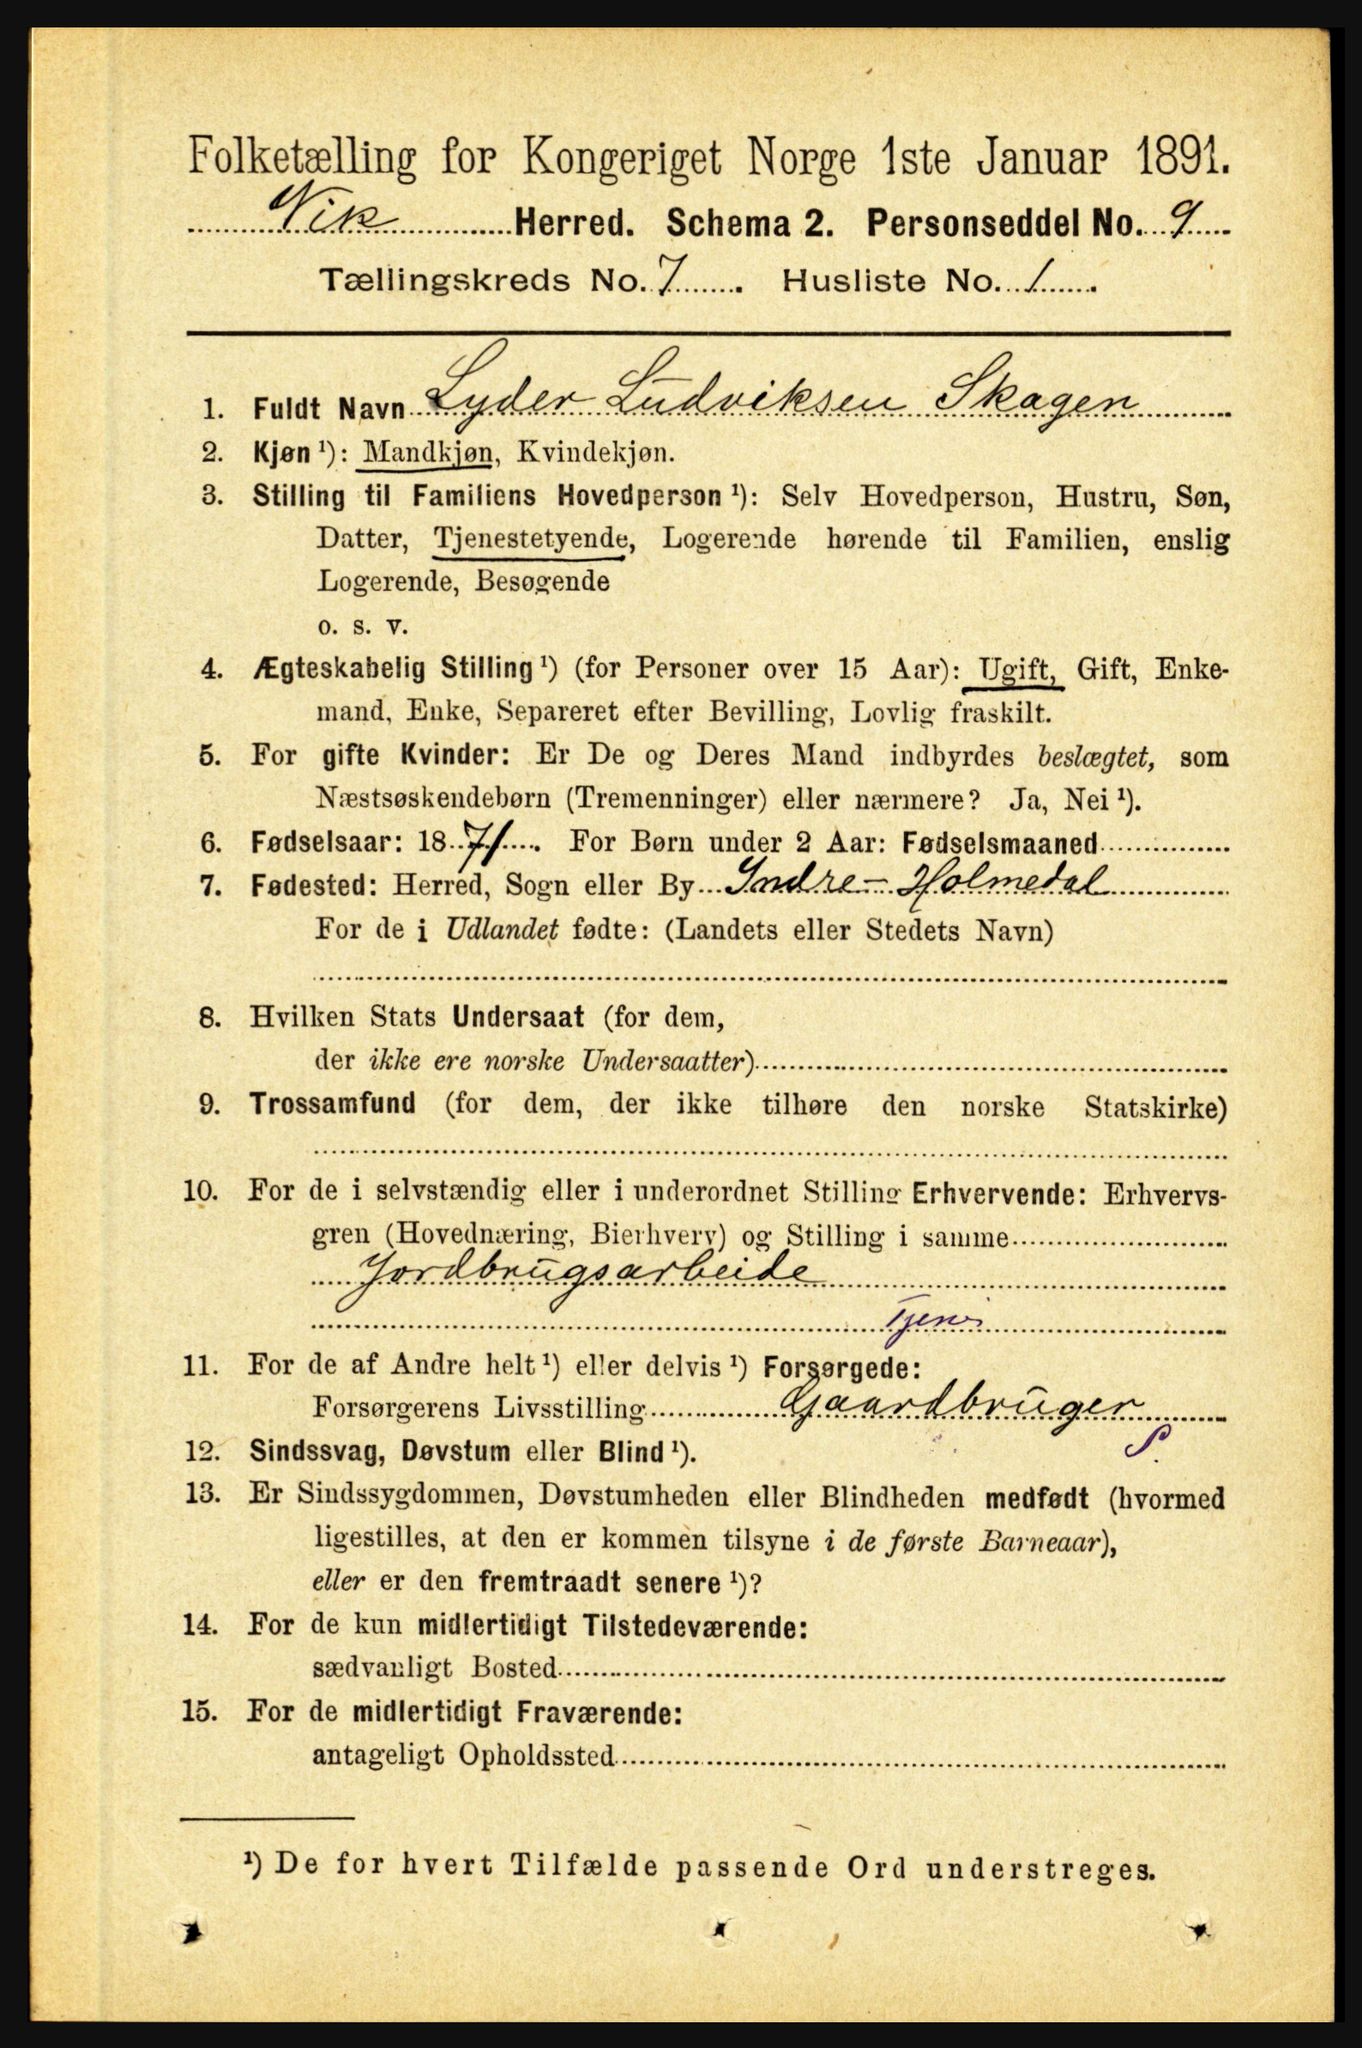 Folketælling for Kongeriget Norge 1ste Januar 1891.
Vik Herred. Schema 2. Personseddel No. 9
Tællingskreds No. 7. Husliste No. 1.
1. Fuldt Navn Lyder Ludviksen Skagen
2. Kjøn ¹): Mandkjøn, Kvindekjøn.
3. Stilling til Familiens Hovedperson ¹): Selv Hovedperson, Hustru, Søn,
Datter, Tjenestetyende, Logerende hørende til Familien, enslig
Logerende, Besøgende
o. s. v.
4. Ægteskabelig Stilling ¹) (for Personer over 15 Aar): Ugift, Gift, Enke-
mand, Enke, Separeret efter Bevilling, Lovlig fraskilt.
5. For gifte Kvinder: Er De og Deres Mand indbyrdes beslægtet, som
Næstsøskendebørn (Tremenninger) eller nærmere? Ja, Nei ¹).
6. Fødselsaar: 1871. For Børn under 2 Aar: Fødselsmaaned
7. Fødested: Herred, Sogn eller By Indre-Holmedal
For de i Udlandet fødte: (Landets eller Stedets Navn)
8. Hvilken Stats Undersaat (for dem,
der ikke ere norske Undersaatter)
9. Trossamfund (for dem, der ikke tilhøre den norske Statskirke)
10. For de i selvstændig eller i underordnet Stilling Erhvervende: Erhvervs-
gren (Hovednæring, Bierhverv) og Stilling i samme
Jordbrugsarbeide
Tjener
11. For de af Andre helt ¹) eller delvis ¹) Forsørgede:
Forsørgerens Livsstilling Gaardbruger
S.
12. Sindssvag, Døvstum eller Blind ¹).
13. Er Sindssygdommen, Døvstumheden eller Blindheden medfødt (hvormed
ligestilles, at den er kommen tilsyne i de første Barneaar),
eller er den fremtraadt senere ¹)?
14. For de kun midlertidigt Tilstedeværende:
sædvanligt Bosted
15. For de midlertidigt Fraværende:
antageligt Opholdssted
¹) De for hvert Tilfælde passende Ord understreges.